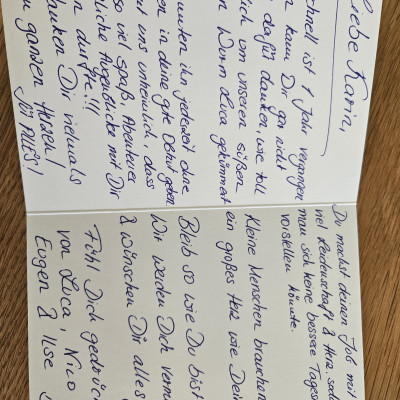 Liebe Karin,
schnell ist 1 Jahr vergangen
kann Dir gar nicht
dafür danken, wie toll
dich um unseren süßen
Wurm Luca gekümmert
ihn jederzeit ohne
in deine gute Obhut geben
uns unheimlich, dass
so viel Spaß, Abenteuer
Augenblicke mit Dir
durfte!!!
danken Dir vielmals
ganzen Herzen!
Du machst deinen Job mit
viel Leidenschaft & Herz, sodass
man sich keine bessere Tages
vorstellen könnte.
Kleine Menschen brauchen
ein großes Herz wie Dein
Bleib so wie Du bist
Wir werden Dich verm
& wünschen Dir alles
Fühl Dich gedrückt
von Luca, Nico
Eugen & Ilse